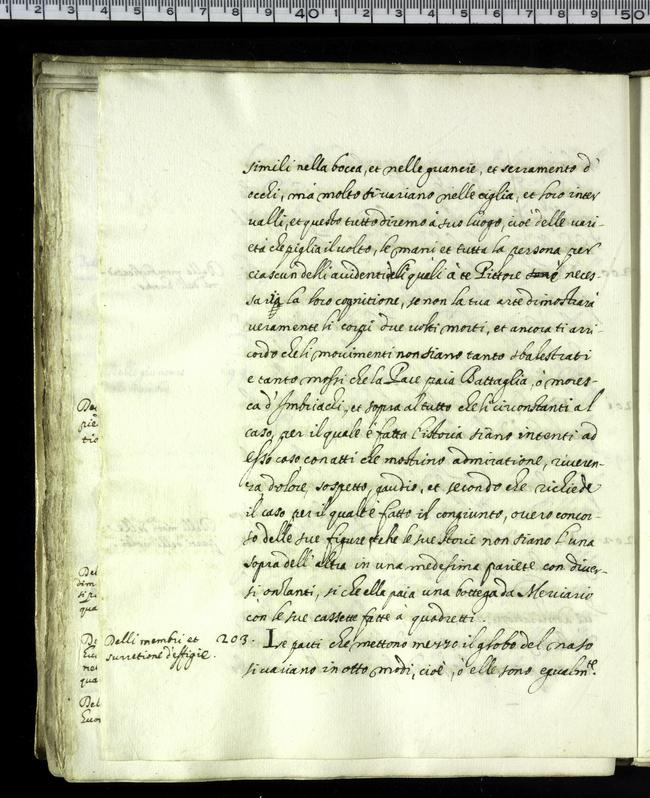 simili nella bocca, et nelle guancie, et serramento d'
occhi, mà molto si variano nelle ciglia, et loro inter
valli, et questo tutto diremo à suo luogo, cioè delle vari-
età che piglia il volto, le mani et tutta la persona per
ciascun delli accidenti, deli quali à te Pittore è neces-
saria la loro cognitione, se non la tua arte dimostrarà
veramente li corpi due volti morti, et ancora ti arri-
cordo che li movimenti non siano tanto sbalestrati
e tanto mossi che la Pace paia Battaglia, ò mores-
ca d'Imbriachi, et sopra al tutto che li circonstanti al
caso, per il quale è fatta l'istoria siano intenti ad
esso caso con atti che mostrino admiratione, riveren-
za dolore, sospetto, gaudio, et secondo che richiede
il caso per il quale è fatto il congiunto, overo concor-
so delle sue figure, che le sue storie non siano l'una
sopra dell'altra in una medesima pariete con diver-
si orizanti, si che ella paia una bottega da Merciario
con le sue cassette fatte à quadretti.
Delli membri et
surretione d'effigie.
203. Le parti che mettono mezzo il globo del naso
si variano in otto modi, cioè, ò elle sono egualmte.
De
pie
tio
Del
dim
si p
qua
De
Eu
ne
qua
Del
Euo